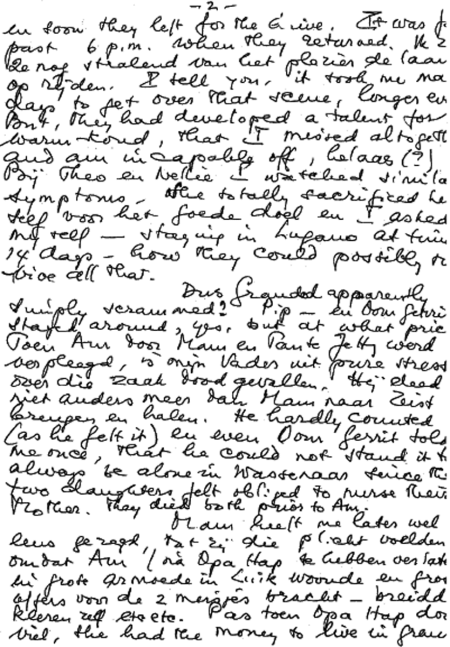 - 2 -
en soon they left for the Guive. It was
past 6 p.m. when they returned. Ik z
ze nog stralend van het plezier de laan
op rijden. I tell you, it took me ma
days to get over that scene, longer ev
But, they had developed a talent for
warm-koud, that I missed altoget
and am incapable off, helaas (?)
Bij Theo en Nellie I watched simila
symptoms - She totally sacrificed he
self voor het goede doel en I asked
my self - staying in Lugano at
14 days - how they could possibly
vive all that.
Dus Granddad apparently
simply scrammed? Pip - en Oom Gerri
stayed around, yes, but at what pric
Toen Am door Mam en Tante Jetty werd
verpleegd, is mijn Vader uit pure stress
over die zaak dood gevallen. Hij deed
niet anders meer dan Mam naar Zeist
brengen en halen. He hardly counted
(as he felt it) en even Oom Gerrit told
me once, that he could not stand it t
always be alone in Wassenaar since th
two daughters felt obliged to nurse their
Mother. They died both prior to Am.
Mam heeft me later wel
eens gezegd, dat zij die plicht voelden
omdat Am, na Opa Hap te hebben verlat
in grote armoede in Luik woonde en gro
offers voor de 2 meisjes bracht - breidd
kleren zelf etc etc. Pas toen Opa Hap doo
viel, she had the money to live in